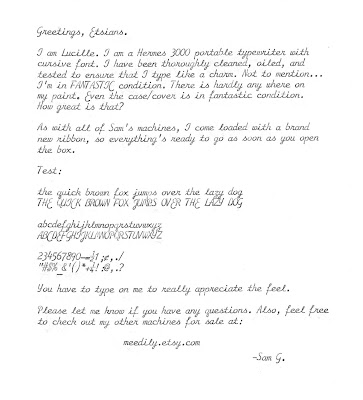 Greetings, Etsians.
I am Lucille. I am a Hermes 3000 portable typewriter with
cursive font. I have been thoroughly cleaned, oiled, and
tested to ensure that I type like a charm. Not to mention...
I'm in FANTASTIC condition. There is hardly any where on
my paint. Even the case/cover is in fantastic condition.
How great is that?
As with all of Sam's machines, I come loaded with a brand
new ribbon, so everything's ready to go as soon as you open
the box.
Test:
the quick brown fox jumps over the lazy dog
THE QUICK BROWN FOX JUMPS OVER THE LAZY DOG
abcdefghijklmnopqrstuvwxyz
ABCDEFGHIJKLMNOPQRSTUVWXYZ
234567890-=½!;¢,./
"#$%_&'()*+¼!:@,.?
You have to type on me to really appreciate the feel.
Please let me know if you have any questions. Also, feel free
to check out my other machines for sale at:
meedily.etsy.com
-Sam G.